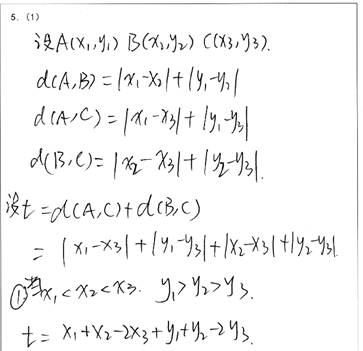 5. (1)
设A(x₁,y₁) B(x₂,y₂) C(x₃,y₃).
d(A,B)=|x₁-x₂|+|y₁-y₂|
d(A,C)=|x₁-x₃|+|y₁-y₃|
d(B,C)=|x₂-x₃|+|y₂-y₃|.
设t=d(A,C)+d(B,C)
=|x₁-x₃|+|y₁-y₃|+|x₂-x₃|+|y₂-y₃|.
①当x₁<x₂<x₃. y₁>y₂>y₃.
t=x₁+x₂-2x₃+y₁+y₂-2y₃.